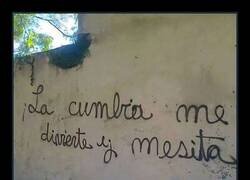 ¡La cumbia me
divierte y mesita